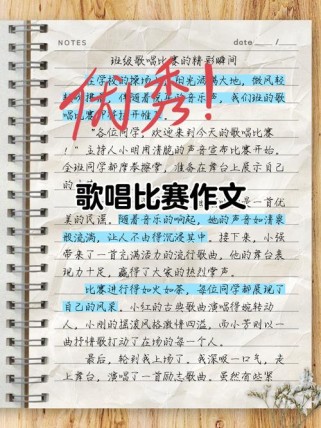 NOTES date
班级歌唱比赛的精彩瞬间
在学校的操场 阳光洒满大地,微风轻
我们班的歌
优秀!
"各位同学,欢迎来到今天的歌唱比赛
!"主持人小明用清脆的声音宣布比赛开始,
全班同学都摩拳擦掌,准备在舞台上展示自己
歌唱比赛作文
是一首优
美的民谣。随着音乐的响起,她的声音如清泉
般流淌,让人不由得沉浸其中。接下来,小强
带来了一首充满活力的流行歌曲,他的舞台表
现力十足,赢得了大家的热烈掌声。
比赛进行得如火如荼,每位同学都展现了
自己的风采。小红的古典歌曲演唱得婉转动
人,小刚的摇滚风格激情四溢,而小芳则以一
曲抒情歌打动了在场的每一个人。
最后,轮到我上场了。我深吸一口气,走
上舞台,演唱了一首励志歌曲。虽然有些紧